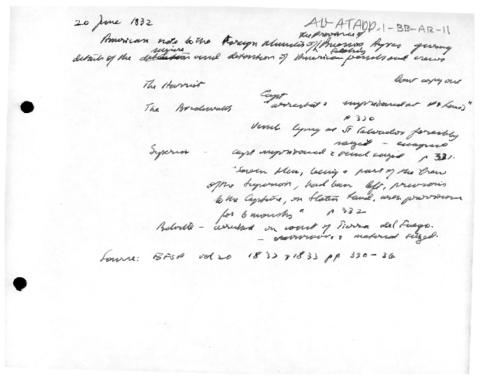 20 June 1832
AU-ATADD-1-BB-AR-11
the province of
American note to the Foreign Minister of Buenos Ayres giving
details of the seizure and detention of American vessels and crews
The Harriet
The Breakwater Capt "arrested & imprisoned at St Louis"
p 330
Vessel lying at St Salvador forcibly
seized
Superior - capt imprisoned & vessel seized p 331
"Seven Men, being a part of the Crew
of the Superior, had been left, previous
to the Capture, on Staten Land, with provisions
for 6 months" p 332
- wrecked on coast of Tierra del Fuego.
- & material seized.
Source: BFSP vol 20 1832 & 1833 pp 330-36